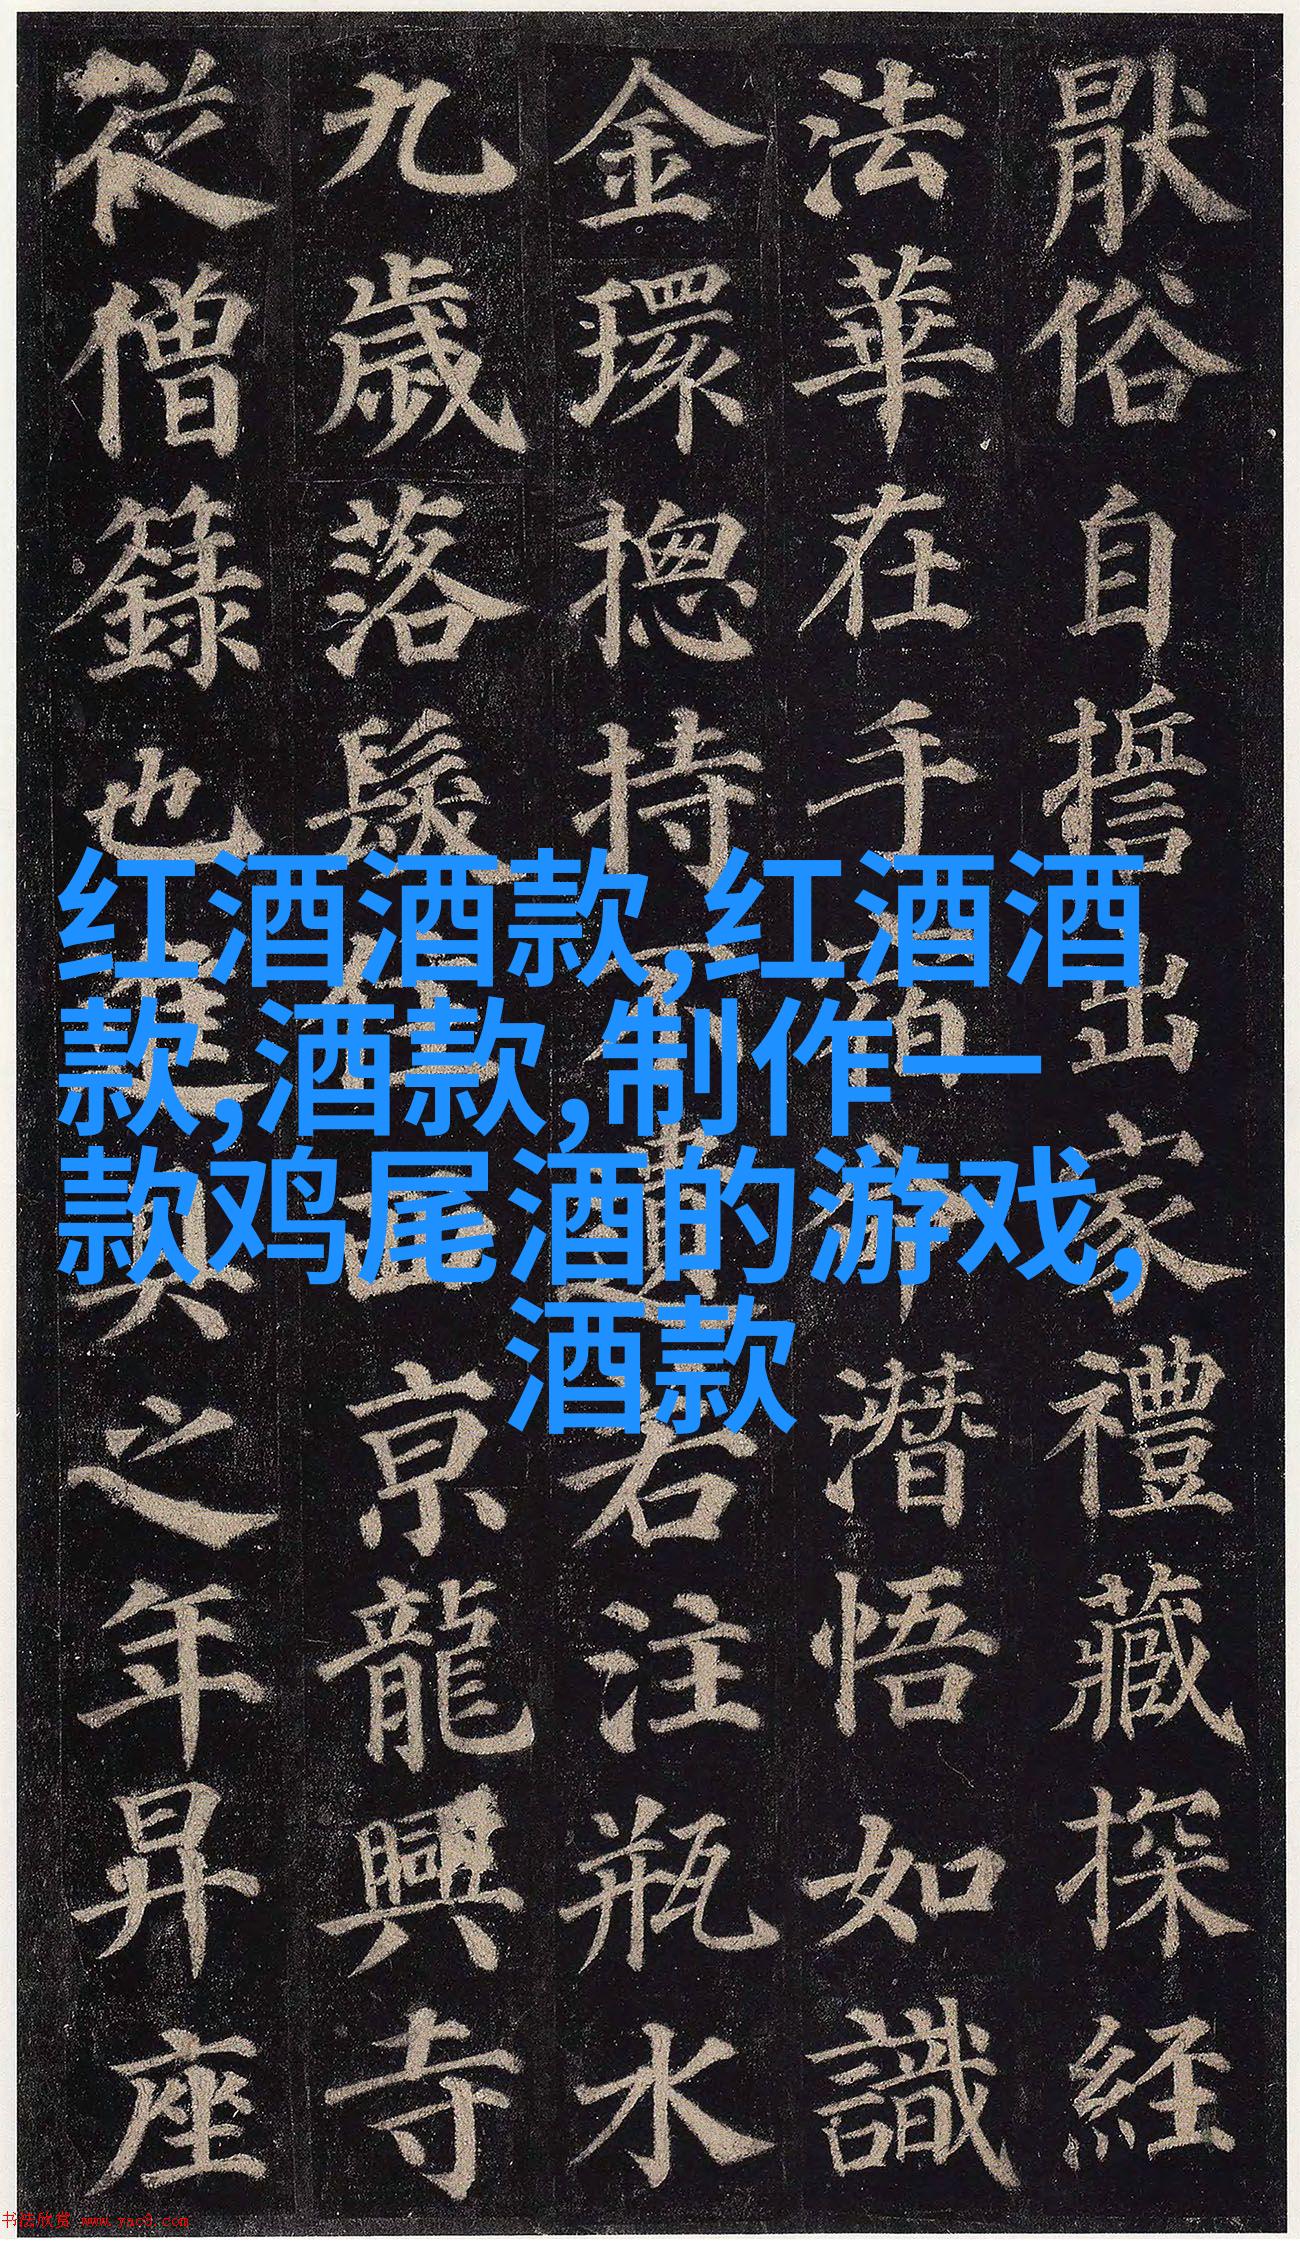 猒俗自誓出家禮藏探經
法華在手宿命潛悟如識
金環揔持不遺若注瓶水
九歲落髮住西京龍興寺
從僧籙也進具之年昇座
红酒酒款,红酒酒
款,酒款,制作一
款鸡尾酒的游戏,
酒款
书法欣赏 www.yac8.com